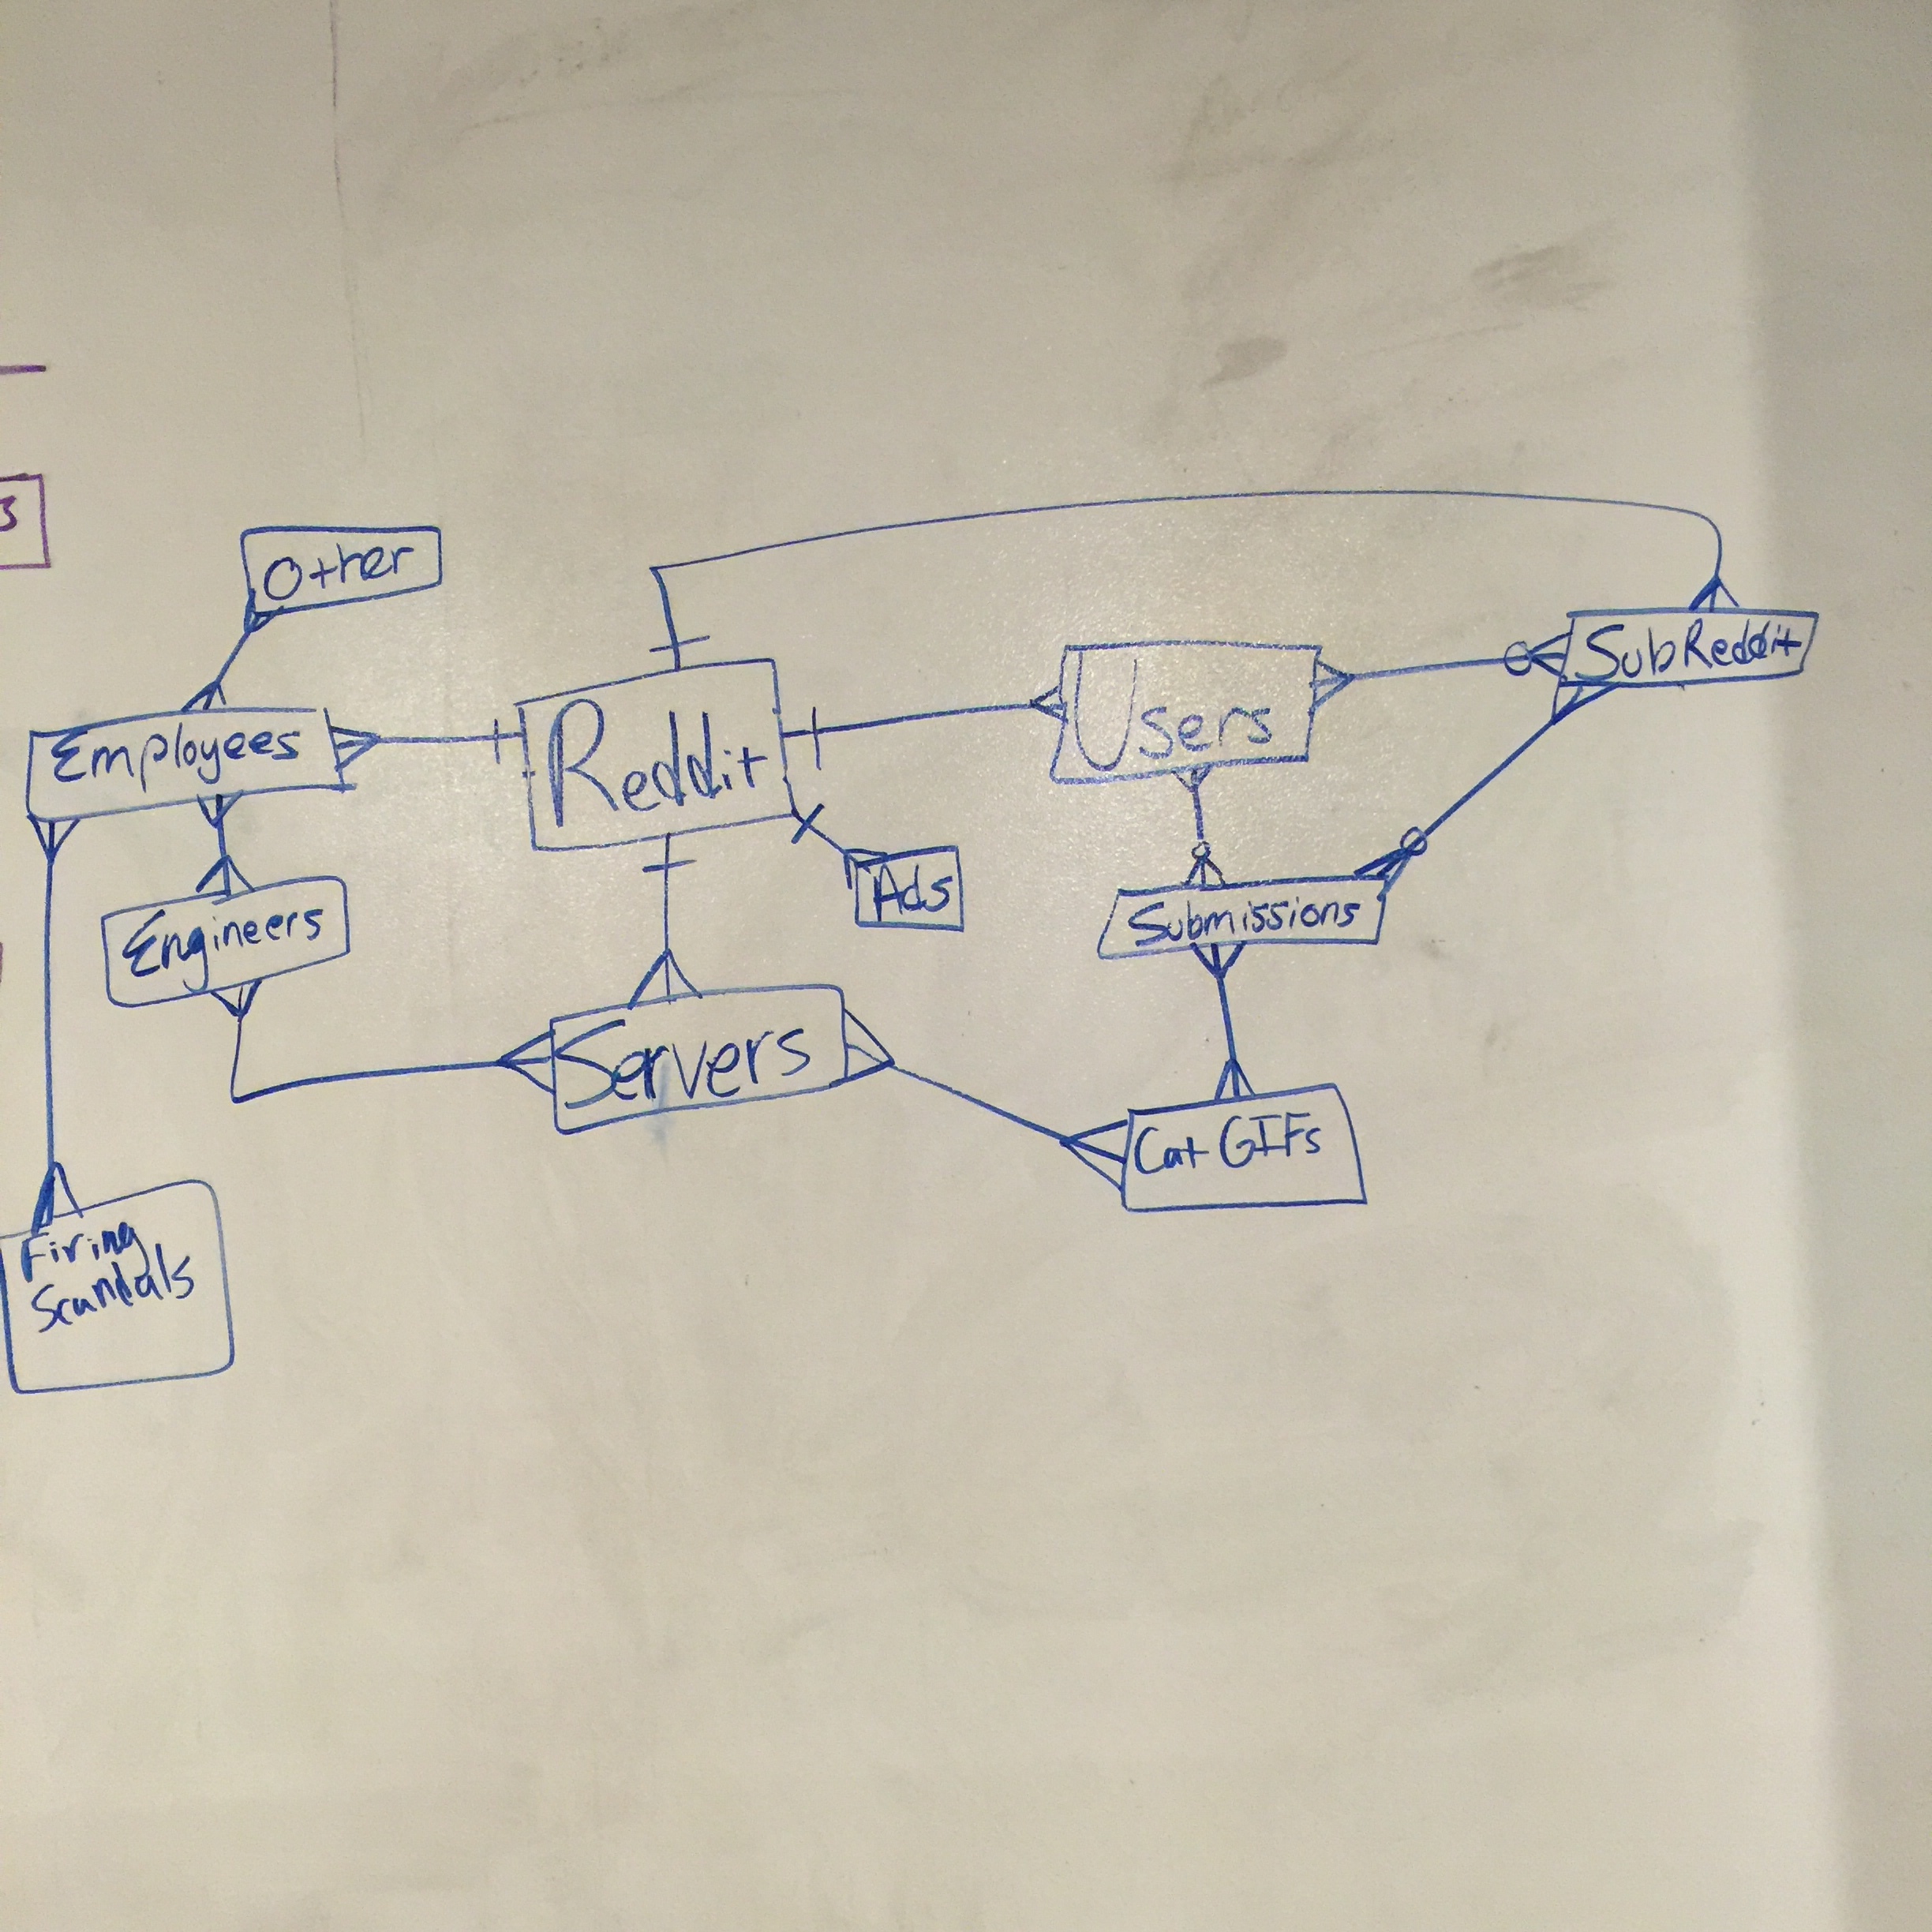 3
Other
Employees
Reddit
Users
SubReddit
Ads
Engineers
Submissions
Servers
Cat GIFs
Firing
Scandals